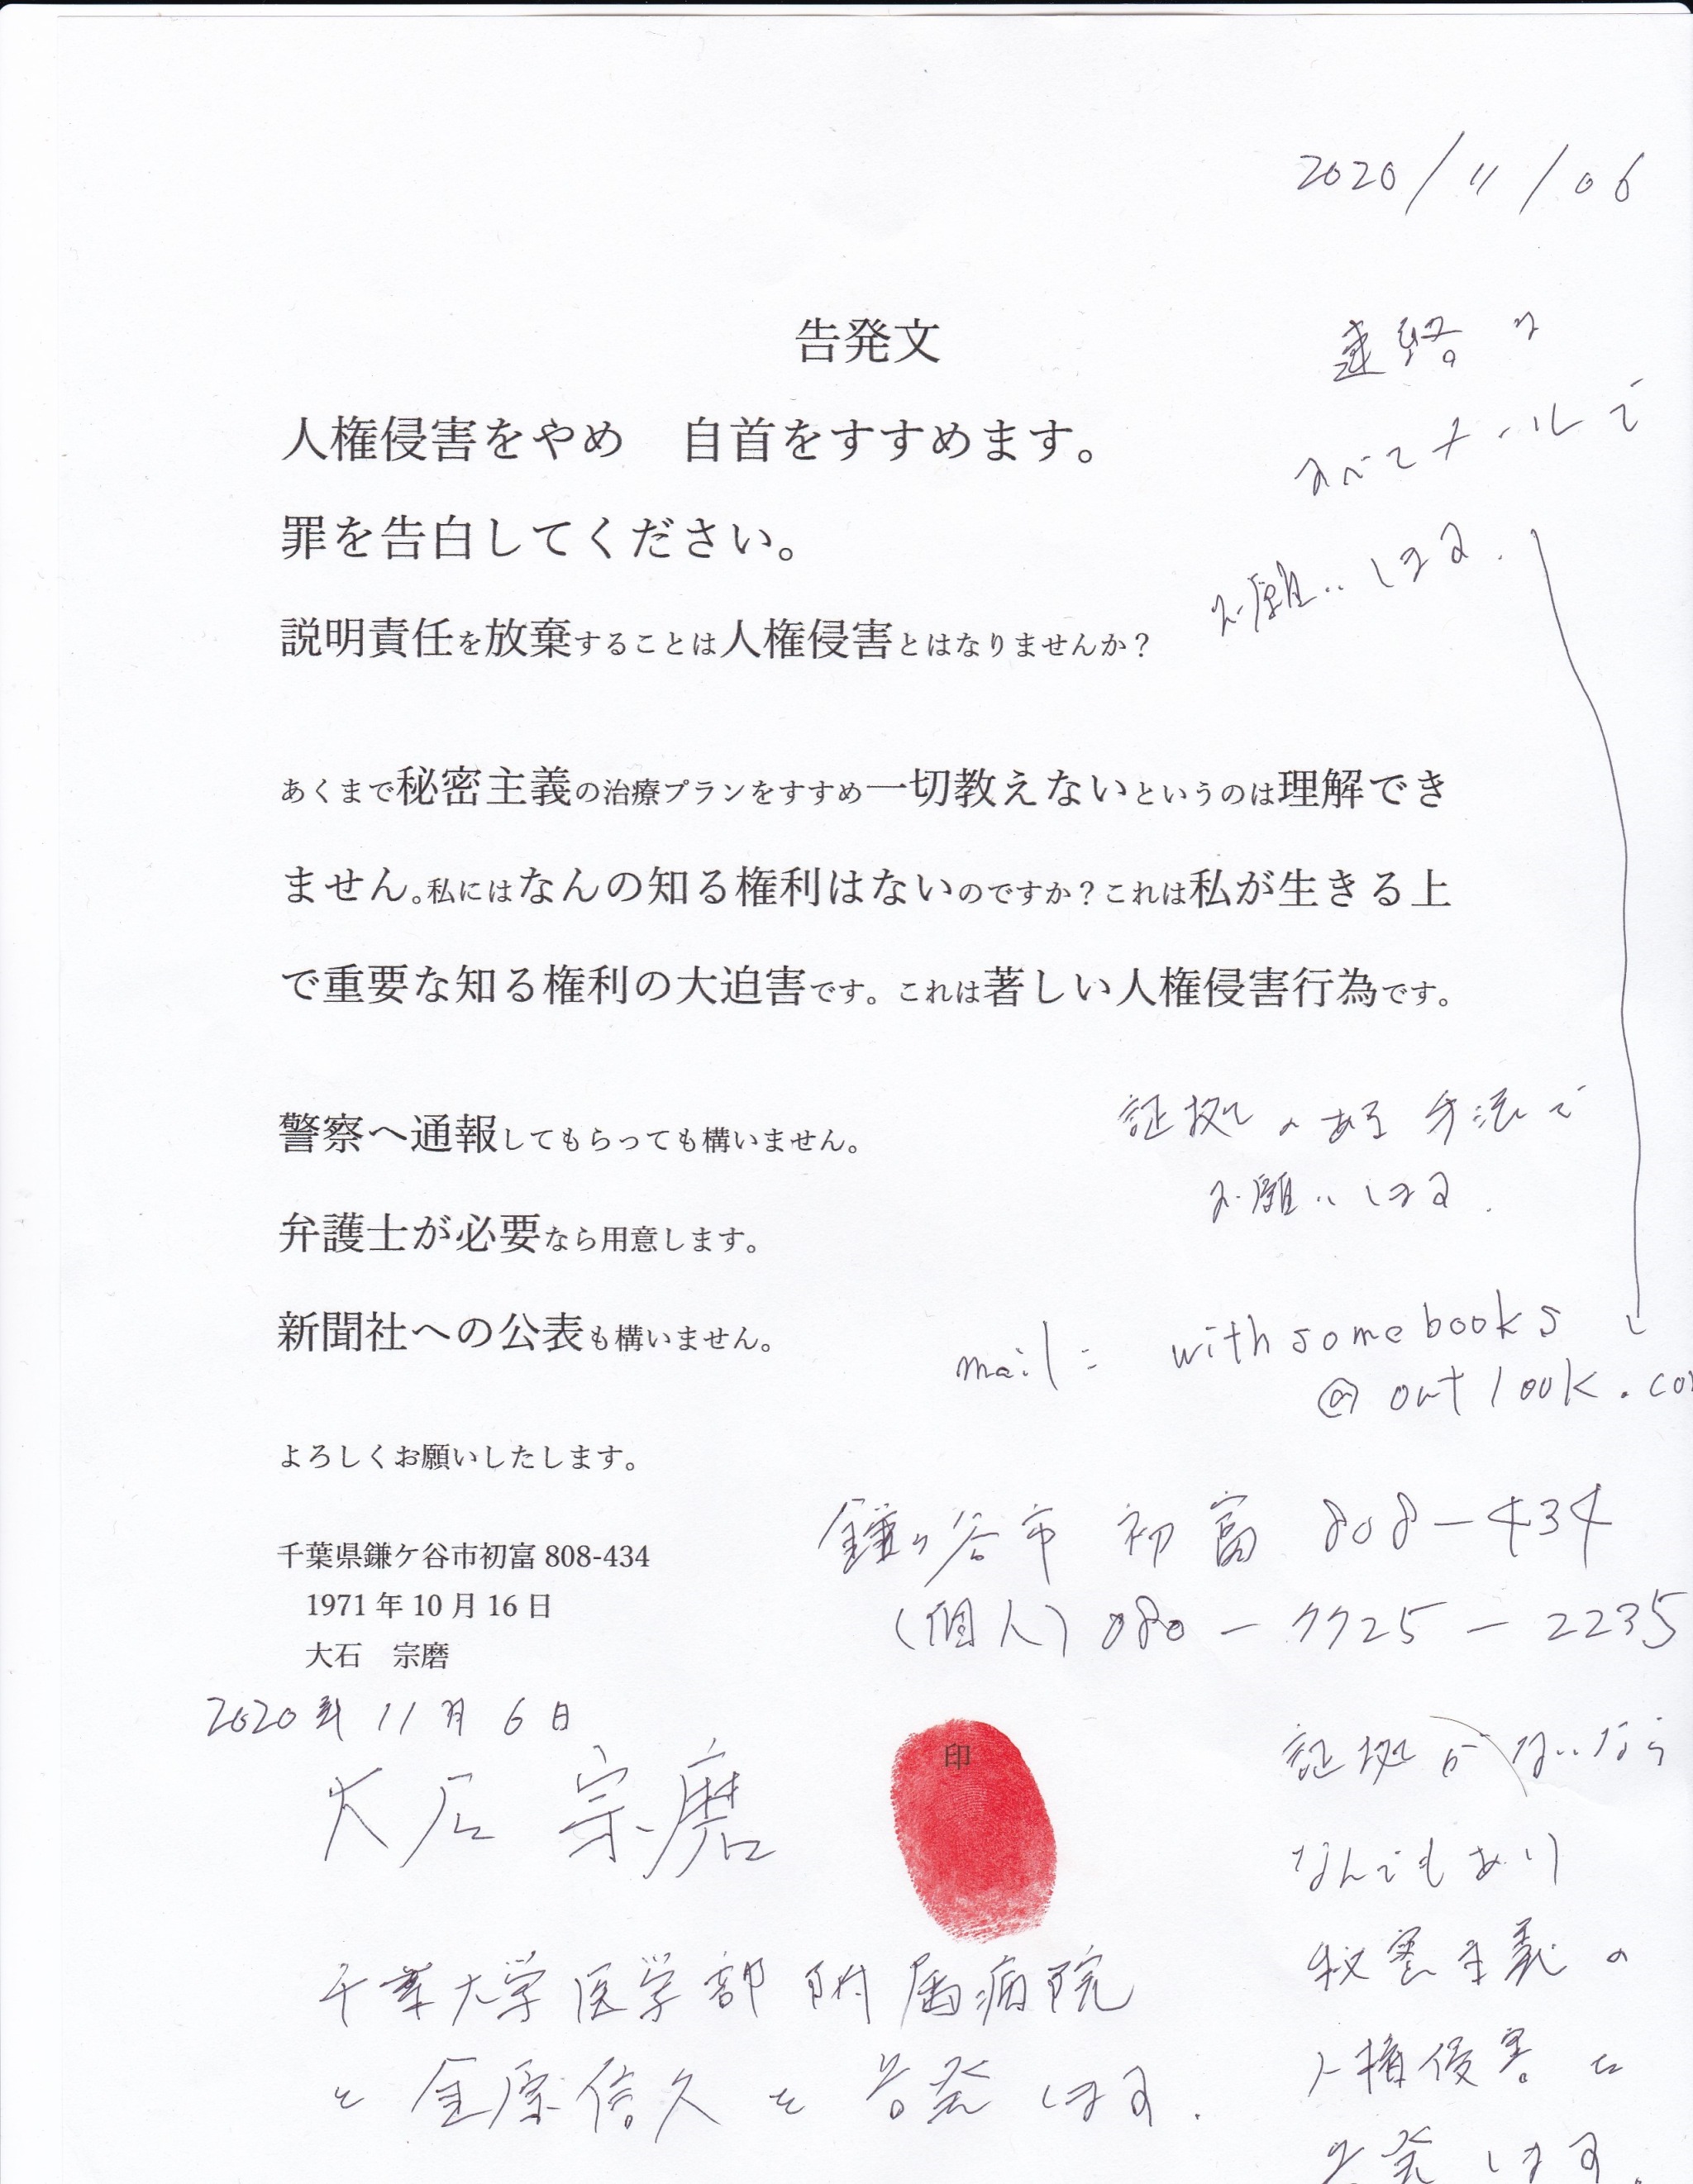 2020/11/06
告発文
連絡は
すべてメールで
お願いします.
人権侵害をやめ　自首をすすめます。
罪を告白してください。
説明責任を放棄することは人権侵害とはなりませんか？
あくまで秘密主義の治療プランをすすめ一切教えないというのは理解でき
ません。私にはなんの知る権利はないのですか？これは私が生きる上
で重要な知る権利の大迫害です。これは著しい人権侵害行為です。
証拠のある手法で
お願いします.
警察へ通報してもらっても構いません。
弁護士が必要なら用意します。
新聞社への公表も構いません。
mail: withsomebooks
@outlook.co
よろしくお願いしたします。
鎌ヶ谷市 初富 808-434
(個人) 080-7725-2235
千葉県鎌ケ谷市初富 808-434
1971 年 10 月 16 日
大石　宗磨
2020年11月6日
大石 宗磨
印
千葉大学医学部附属病院
と 金原信久を告発します.
証拠がないなら
なんでもあり
秘密主義の
人権侵害を
告発します.